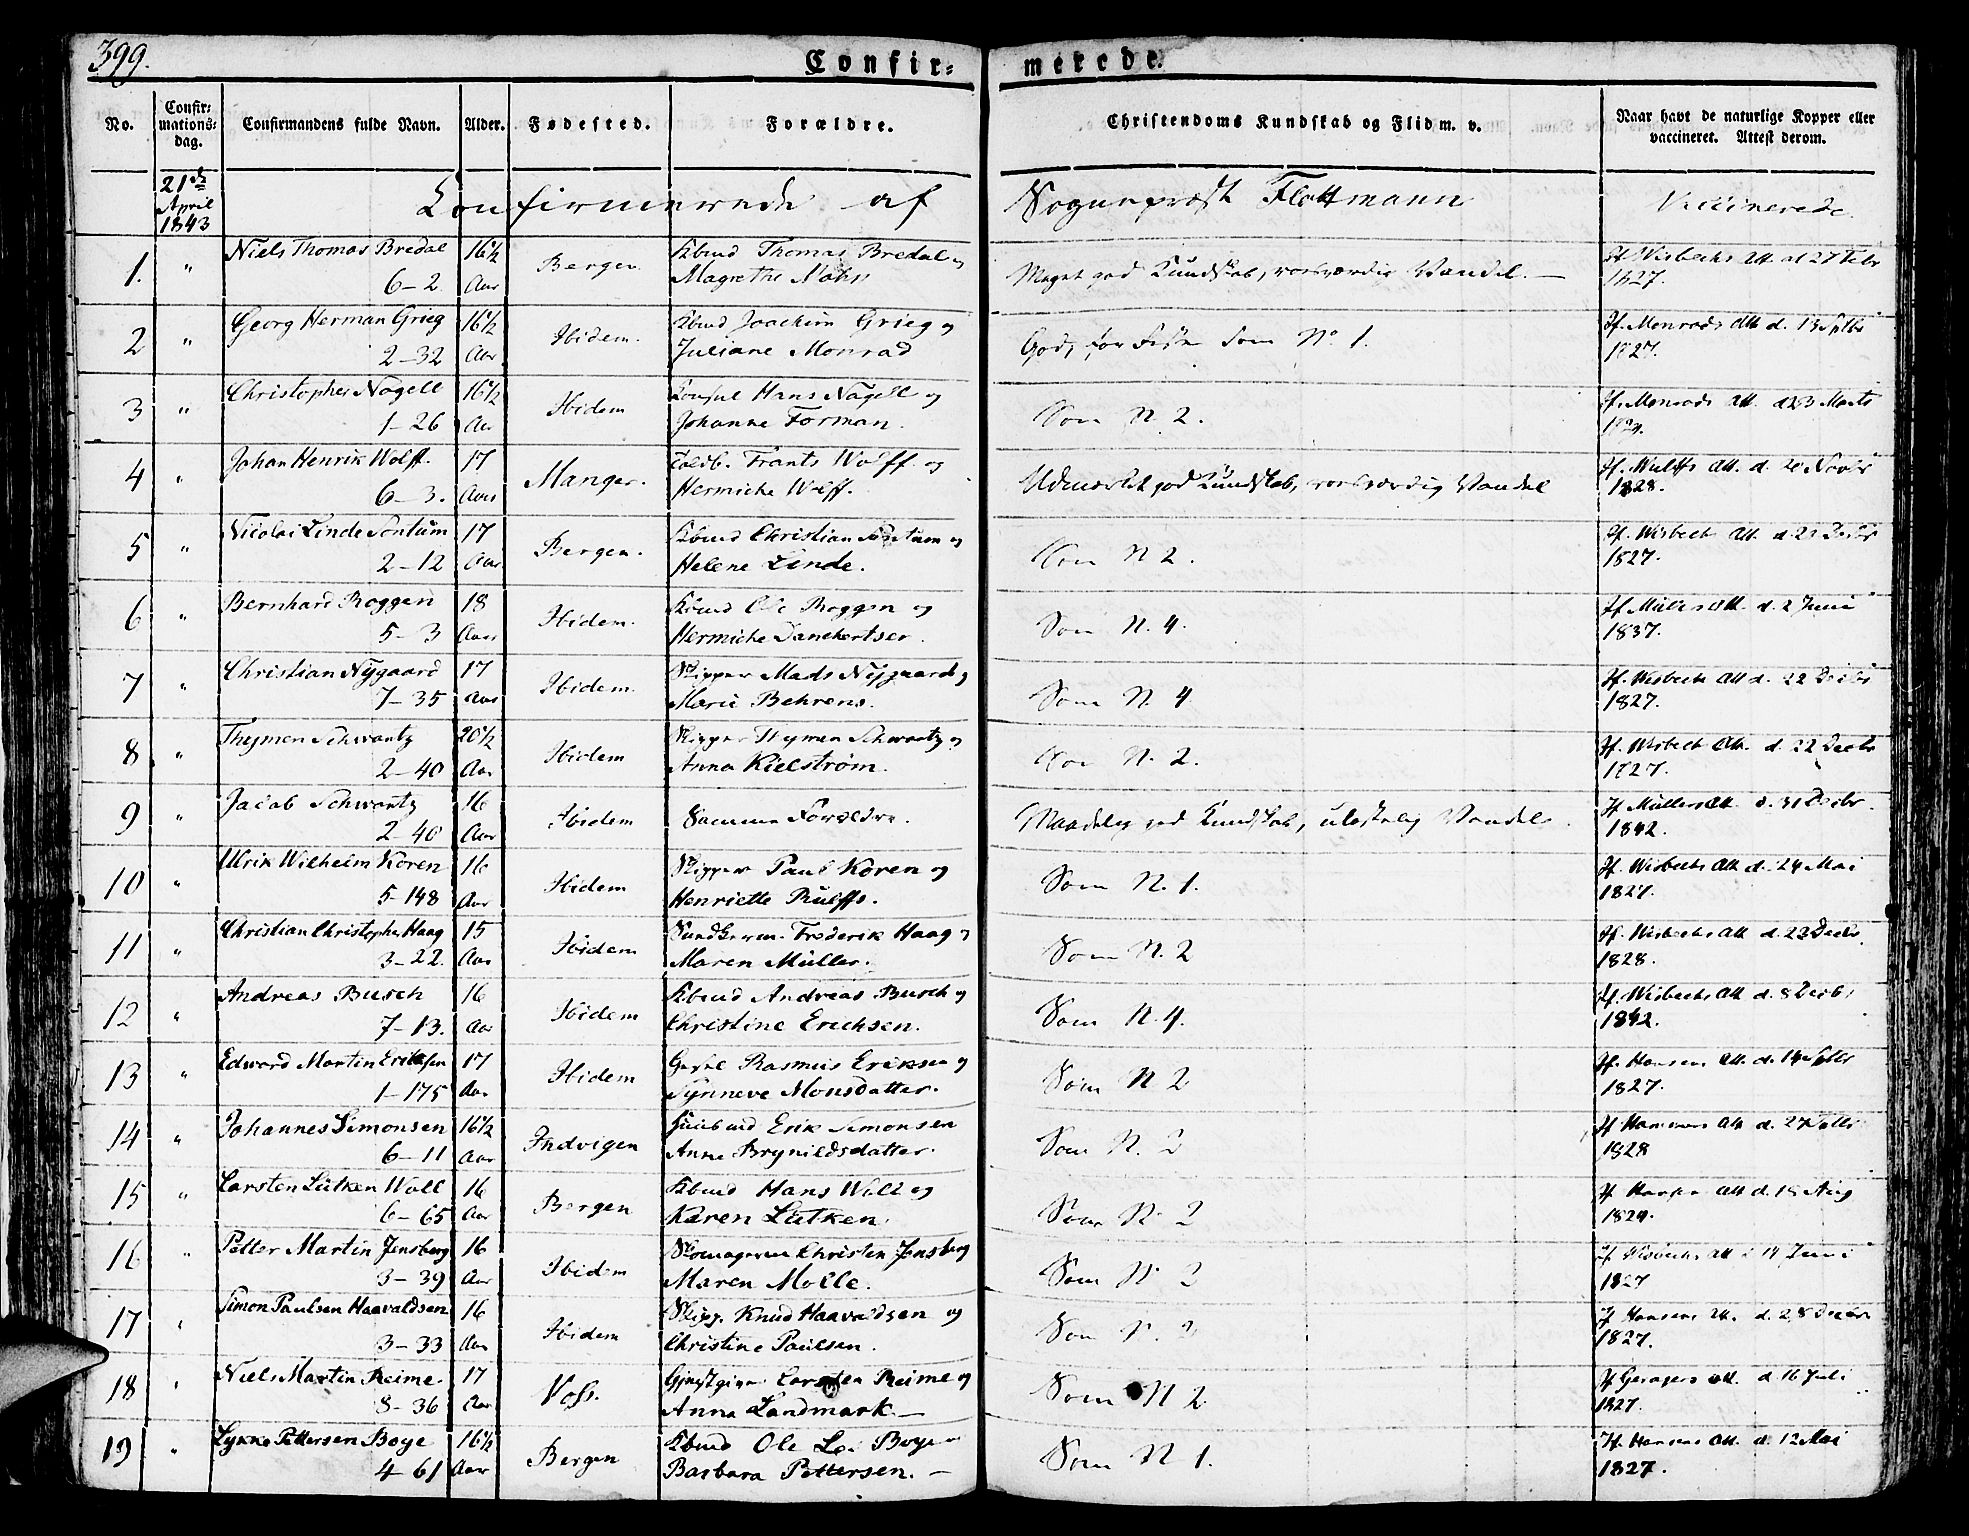 399.
Confir= merede.
No.
Confir=
mations=
dag.
Confirmandens fulde Navn.
Alder.
Fødested.
Forældre.
Christendoms Kundskab og Flid m. v.
Naar havt de naturlige Kopper eller
vaccineret. Attest derom.
21de
April
1843
Confirmerede af Sogneprest Flottmann Vaccinerede.
1. " Niels Thomas Bredal 16½ Bergen Kbmd Thomas Bredal og Meget god Kundskab, roesværdig Vandel. — If. Wisbechs Att. af 27 Febr
6-2 Aar Magrethe 1827.
2 " Georg Herman Grieg 16½ Ibidem. Kbmd Joachim Grieg og God, for Som No 1. If. Monrads Att. d. 13 Sptbr
2-32 Aar Juliane Monrad 1827.
3 " Christopher Nagell 16½ Ibidem Consul Hans Nagell og Som N. 2. If. Monrads Att. d 23 Marts
1-26 Aar Johanne Forman. 1829.
4 " Johan Henrik Wolff. 17 Manger. Toldb. Frants Wolff. og Udmærket god Kundskab, roesværdig Vandel If. Wulffs Att. d. 20 Novbr
6-3. Aar Hermiche Wolff. 1828.
5 " Nicolai Linde Sontum 17 Bergen. Kbmd Christian Sontum og Som N 2. If. Wisbechs Att. d. 22 Decbr
2-12 Aar Helene Linde. 1827.
6 " Bernhard Roggen 18 Ibidem. Kbmd Ole Roggen og Som N. 4. If. Müllers Att. d. 2 Juni
5-3 Aar Hermiche Danckertsen. 1837.
7 " Christian Nygaard 17 Ibidem. Skipper Mads Nygaard og Som N. 4 If. Wisbechs Att d. 22 Decbr
7-35 Aar Marie Behrens. 1827.
8 " Thymen Schwartz 20½ Ibidem Skipper Thymen Schwartz og Som N. 2. If. Wisbechs Att. d. 22 Decbr
2-40 Aar Anna Kielstrøm. 1827.
9 " Jacob Schwartz 16 Ibidem Samme Forældre. Maadelig god Kundskab, ulastelig Vandel. If Müllers Att d. 31 Decbr.
2-40 Aar 1842.
10 " Ulrik Wilhelm Koren 16 Ibidem Skipper Paul Koren og Som N. 1. If. Wisbechs Att d. 24 Mai
5-148 Aar Henriette Rulffs. 1827.
11 " Christian Christopher Haag 15 Ibidem Frederik Haag og Som N. 2 If. Wisbechs Att d. 22 Decbr.
3-22. Aar Maren Müller. 1828.
12 " Andreas Busch 16 Ibidem Kbmd Andreas Busch og Som N. 4. If. Wisbechs Att d. 8 Decbr
7-13. Aar Christine Erichsen. 1842.
13 " Edward Martin Eriksen 17 Ibidem Rasmus Eriksen og Som N 2 If. Hansens Att. d. 14 Sptbr
1-175 Aar Synneve Monsdatter. 1827.
14 " Johannes Simonsen 16½ Indvigen Erik Simonsen Som N. 2 If Hansens Att d. 27 Sptbr
6-11 Aar Anne Brynildsdatter. 1828
15 " Carsten Lütken Woll 16 Bergen Kbmd Hans Woll og Som N. 2 If Att d. 18 Aug
6-65 Aar Karen Lütken. 1829.
16 " Petter Martin Jensberg 16 Ibidem Skomagerm. Christen Jensberg Som N. 2 If Wisbechs Att d 14 Juni
3-39 Aar Maren Molle. 1827
17 " Simon Paulsen Haavaldsen 16 Ibidem Skipp. Knud Haavaldsen og Som N. 2 If Hansens Att. d. 28 Decbr
3-33 Aar Christine Paulsen. 1827.
18 " Niels Martin Reime 17 Voss. Gjestgiver Carsten Reime og Som N 2 If Att. d. 16 Juli
8-36 Aar Anna Landmark. — 1827.
19 " Lyder Pettersen Boye 16½ Bergen Kbmd Ole Boye Som N 1. If. Hansens Att. d. 12 Mai
4-61 Aar Barbara Pettersen. — 1827.